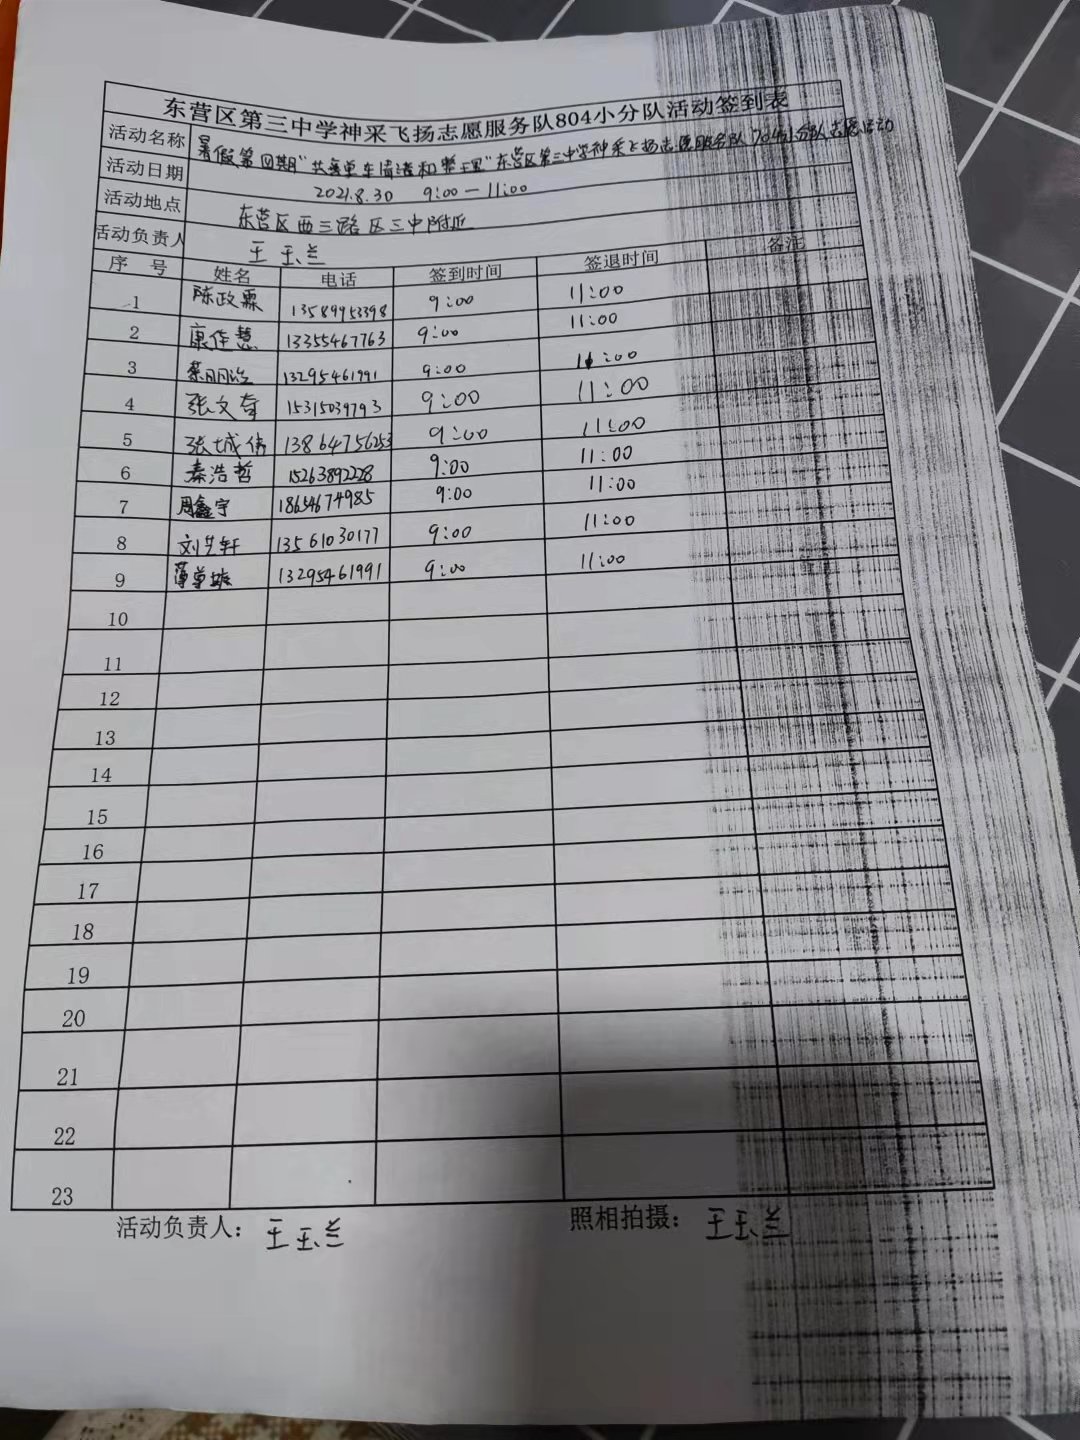 东营区第三中学神采飞扬志愿服务队804小分队活动签到表
活动名称 暑假第四期"共享单车清洁和整理"东营区第三中学神采飞扬志愿服务队704小分队志愿活动
活动日期 2021.8.30 9:00—11:00
活动地点 东营区西三路区三中附近
活动负责人 王玉兰
序号 姓名 电话 签到时间 签退时间 备注
1 陈政霖 13589953398 9:00 11:00
2 康佳慧 13355467763 9:00 11:00
3 13295461991 9:00 11:00
4 张文奎 15315039793 9:00 11:00
5 张城伟 13864756253 9:00 11:00
6 秦浩哲 15263892228 9:00 11:00
7 周鑫宇 18654674985 9:00 11:00
8 刘艺轩 13561030177 9:00 11:00
9 13295461991 9:00 11:00
10
11
12
13
14
15
16
17
18
19
20
21
22
23
活动负责人：王玉兰 照相拍摄：王玉兰